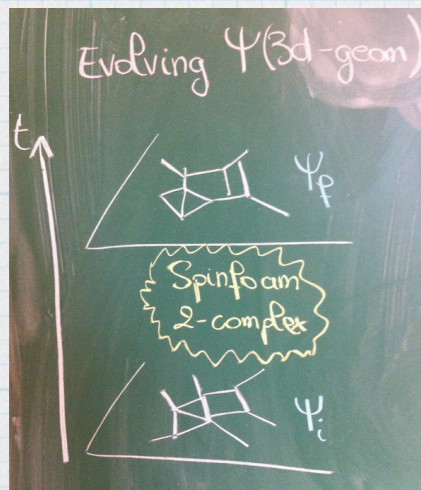 Evolving Ψ(3d-geom)
t
Ψf
Spinfoam
2-complex
Ψi